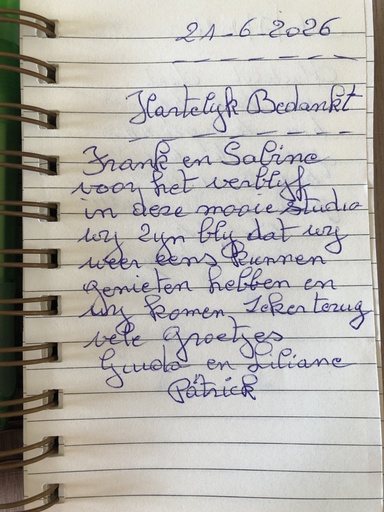 21-6-2026
Hartelyk Bedankt
Frank en Sabine
voor het verblyf
in deze mooie studio
wy zyn bly dat wy
weer eens kunnen
genieten hebben en
wy komen zeker terug
vele groetjes
Guido en Liliane
Patrick